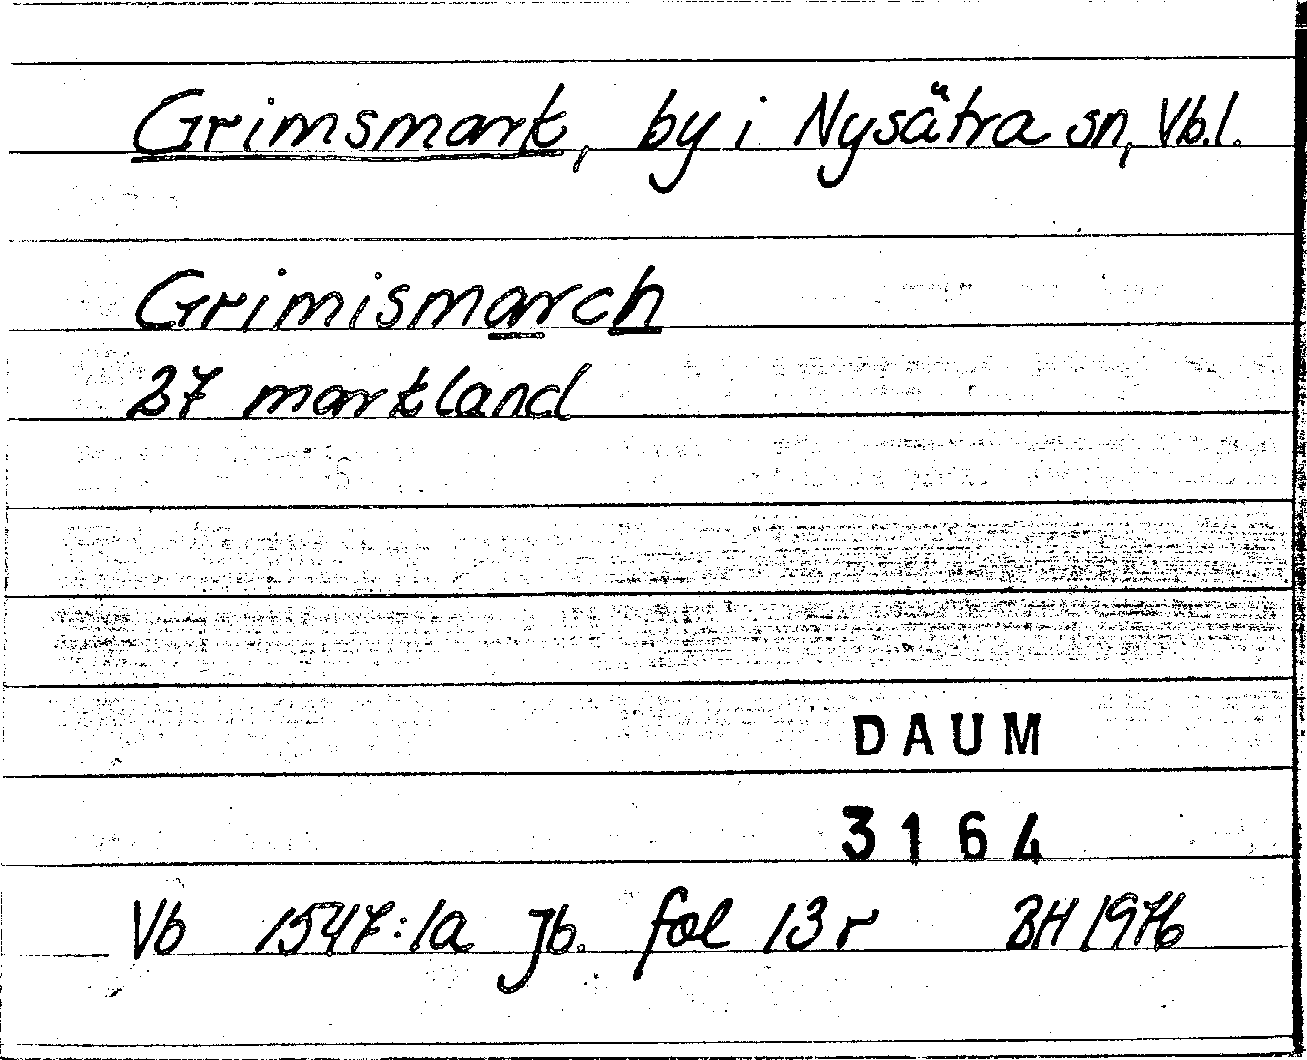 Grimsmark, by i Nysätra sn, Vb.l.
Grimismarch
27 markland
DAUM
3164
Vb 1547:1a Jb. fol 13 r BH 1976